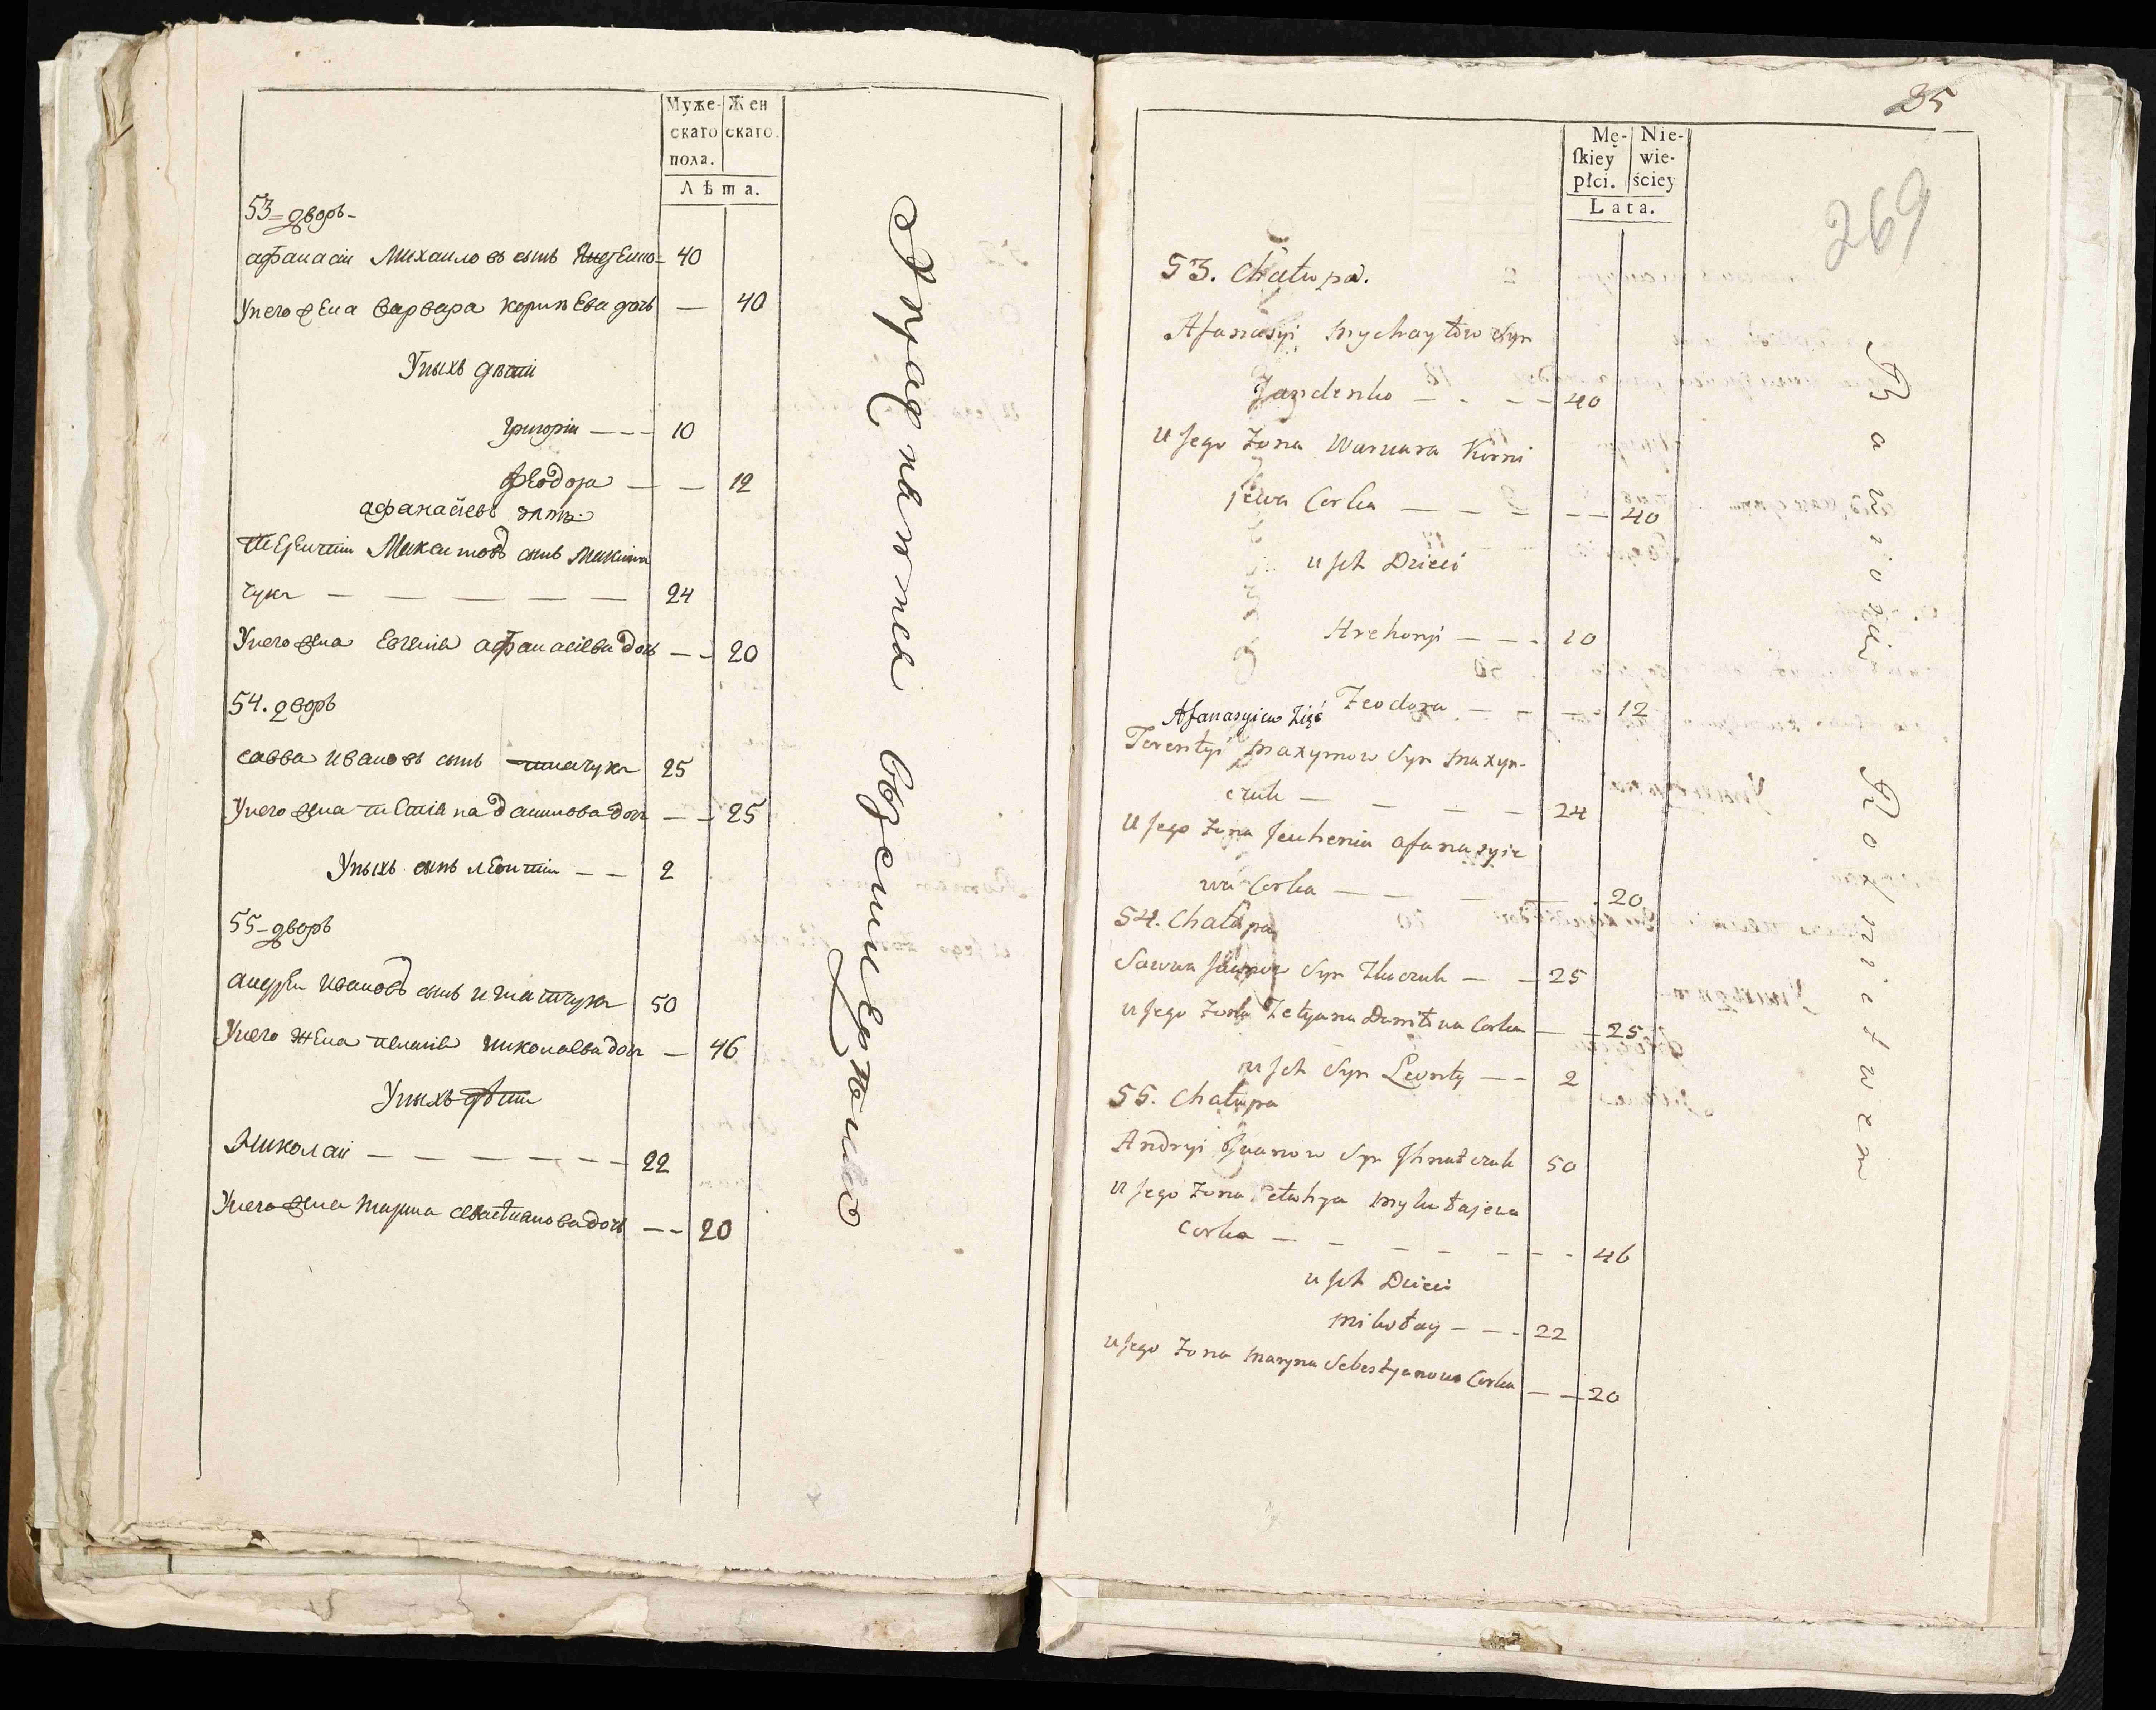 Муже- Жен
скаго скаго.
пола.
Лѣта.
53=дворъ-
афанасіи Михаиловъ сынъ 40
Унего жена варвара корнѣева дочь — 40
Уныхъ дѣти
григоріи — — — 10
феодора — — 12
афанасиевъ зять
терентіи Максимовъ сынъ макси
чукъ — — — — — — 24
Унего жена Евгенія афанасиева дочь — — 20
54. дворъ
савва ивановъ сынъ 25
Унего жена данилова дочь — — 25
Уныхъ сынъ леонтіи — — 2
55-дворъ
андреи ивановъ сынъ игнатчукъ 50
Унего жена пелагія николаева дочь — 46
Уныхъ дѣти
Николаи — — — — — — — 22
Унего жена марина севастианова дочь — — 20
35
269
Mę- Nie-
ſkiey wie-
płci. ściey
Lata.
53. Chałupa.
Afanasyi Mychayłow Syn
40
u Jego Żona Warwara Korni
jewa Corka — — — — — 40
u Jch Dzieci
Hrehoryi — — - 10
Teodora — — — 12
Afanasyiew Zięć
Terentyi Maxymow Syn Maxym-
czuk — — — — — 24
u Jego Żona Jeuhenia Afanasyie
wa Corka — — — — 20
54. Chałupa
Sawwa Jwanow Syn — — 25
u Jego Żona Tetyana Daniłowa Corka — — 25
u Jch Syn Leonty — — 2
55. Chałupa
Andryi Jwanow Syn Jhnatczuk 50
u Jego Żona Pełahya Mykołajewa
Corka — — — — — — - 46
u Jch Dzieci
Mikołay — — - 22
u Jego Żona Maryna Sebestyanowa Corka — — 20